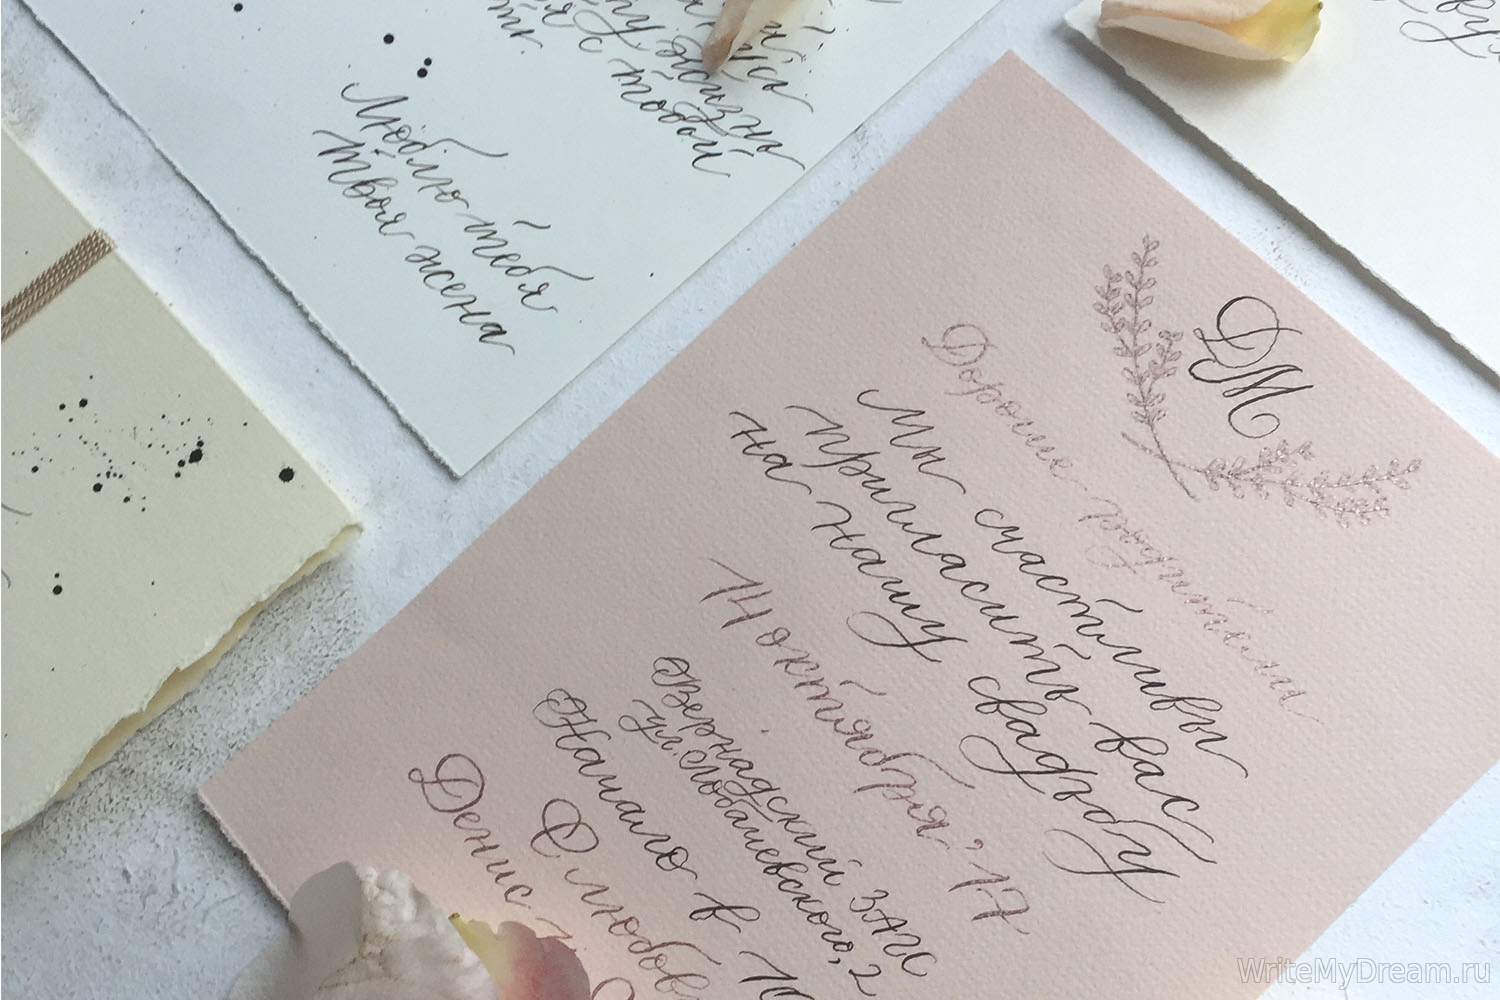 жизнь
с тобой
Люблю тебя
Твоя жена
ДМ
Дорогие родители
Мы счастливы
пригласить вас
на нашу свадьбу
14 октября '17
Вернадский ЗАГС
ул. Лобачевского, 2
Начало в 10
С любовью
Денис
WriteMyDream.ru